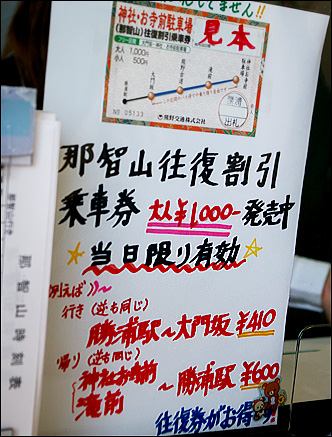 てません!!
神社・お寺前駐車場
(那智山)往復割引乗車券
見本
大人 1,000円
小人 500円
大門坂
熊野交通株式会社
No 05133
出札
那智山往復割引
乗車券 大人¥1,000-発売中
☆当日限り有効☆
(例えば))~
行き (逆も同じ)
勝浦駅~大門坂 ¥410
帰り (逆も同じ)
神社お寺前
滝前 ~勝浦駅 ¥600
往復券がお得
那智山時刻表